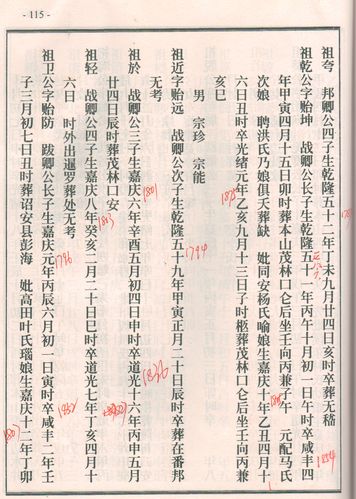 - 115 -
祖夸　邦卿公四子生乾隆五十二年丁未九月廿四日亥时卒葬无稽
祖乾公字贻坤　战卿公长子生乾隆五十一年丙午十月初一日午时卒咸丰四
年甲寅四月十五日卯时葬本山茂林口仑后坐壬向丙兼子午　元配马氏
次娘　聘洪氏乃娘俱夭葬缺　妣同安杨氏喻娘生嘉庆十年乙丑四月十
六日丑时卒光绪元年乙亥九月十三日子时柩葬茂林口仑后坐壬向丙兼
亥巳
男　宗珍　宗能
祖近字贻远　战卿公次子生乾隆五十九年甲寅正月二十日辰时卒葬在番邦
无考
祖於　战卿公三子生嘉庆六年辛酉五月初四日申时卒道光十六年丙申五月
廿四日辰时葬茂林口安
祖轻　战卿公四子生嘉庆八年癸亥二月二十日巳时卒道光七年丁亥四月十
六日　时外出暹罗葬处无考
祖卫公字贻防　跋卿公长子生嘉庆元年丙辰六月初一日寅时卒咸丰二年壬
子三月初七日丑时葬诏安县彭海　妣高田叶氏瑙娘生嘉庆十二年丁卯
1854
1875
1794
1801
1836
1803
1796
1852
1807